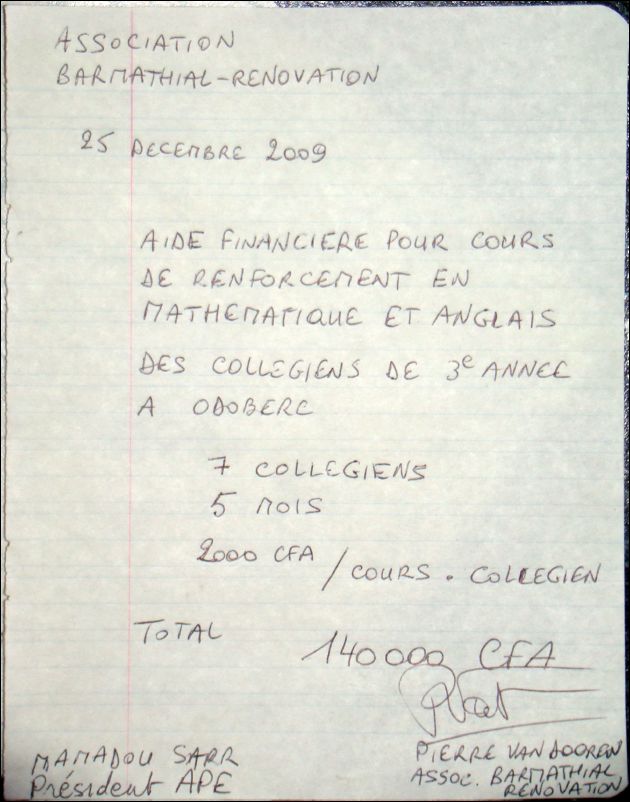 ASSOCIATION
BARMATHIAL-RENOVATION
25 DECEMBRE 2009
AIDE FINANCIERE POUR COURS
DE RENFORCEMENT EN
MATHEMATIQUE ET ANGLAIS
DES COLLEGIENS DE 3e ANNEE
A ODOBERE
7 COLLEGIENS
5 MOIS
2000 CFA
/ COURS . COLLEGIEN
TOTAL
140000 CFA
MAMADOU SARR
Président APE
PIERRE VAN DOOREN
ASSOC. BARMATHIAL
RENOVATION